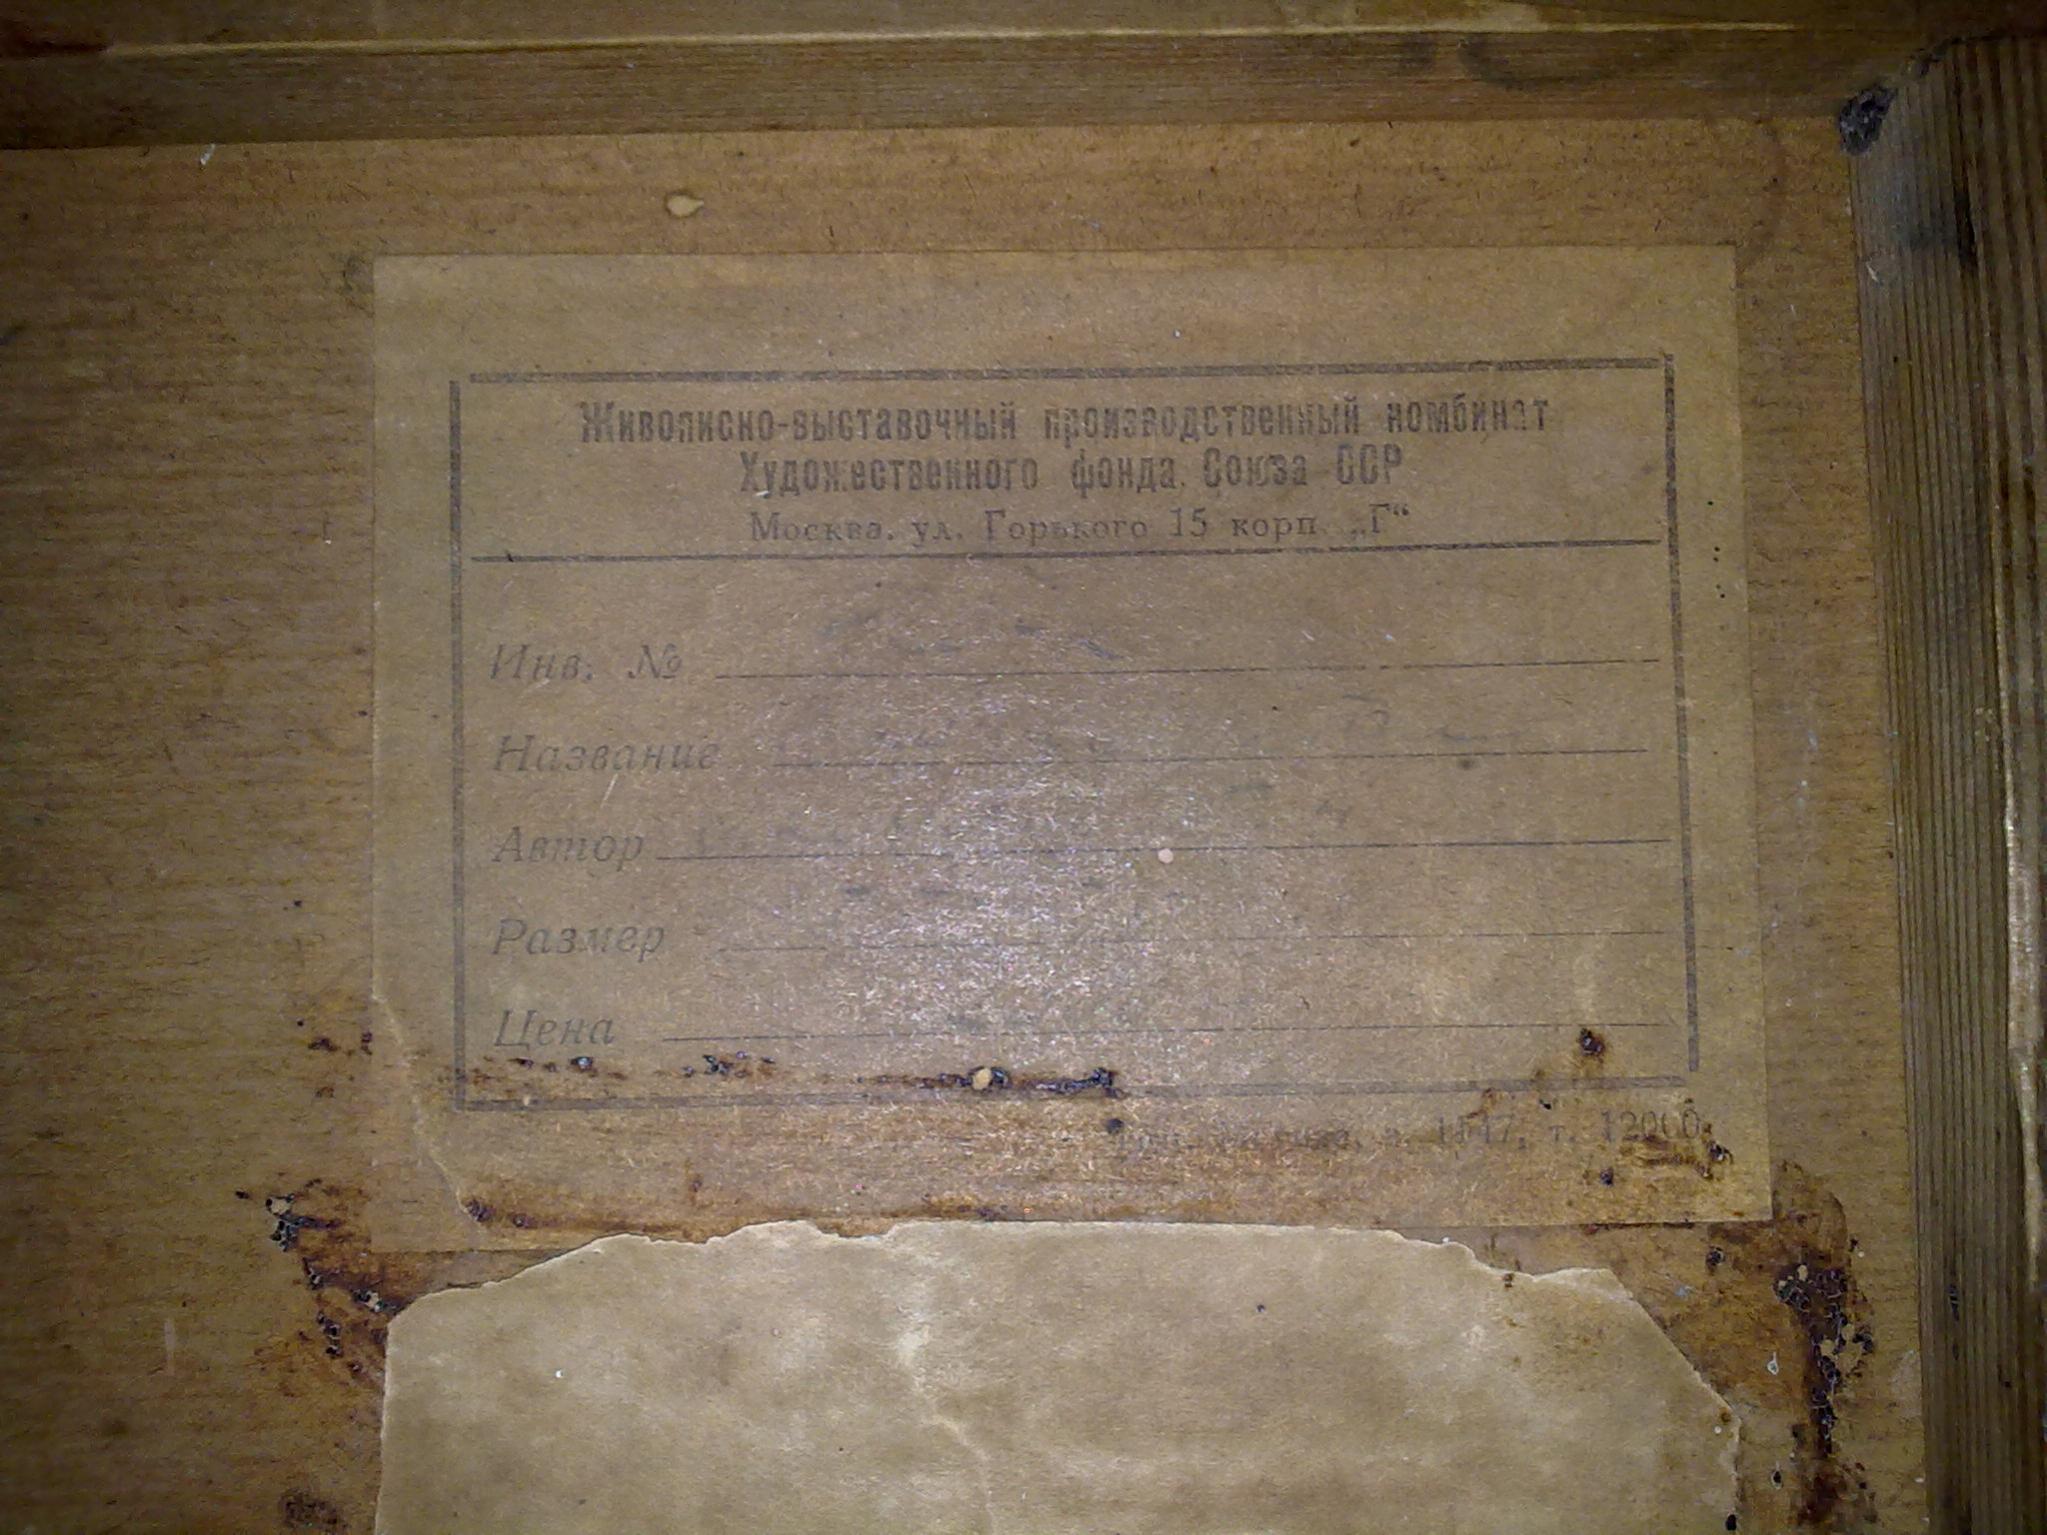 Живописно-выставочный производственный комбинат
Художественного фонда Союза ССР
Москва, ул. Горького 15 корп. „Г“
Инв. №
Название
Автор
Размер
Цена
т. 12000